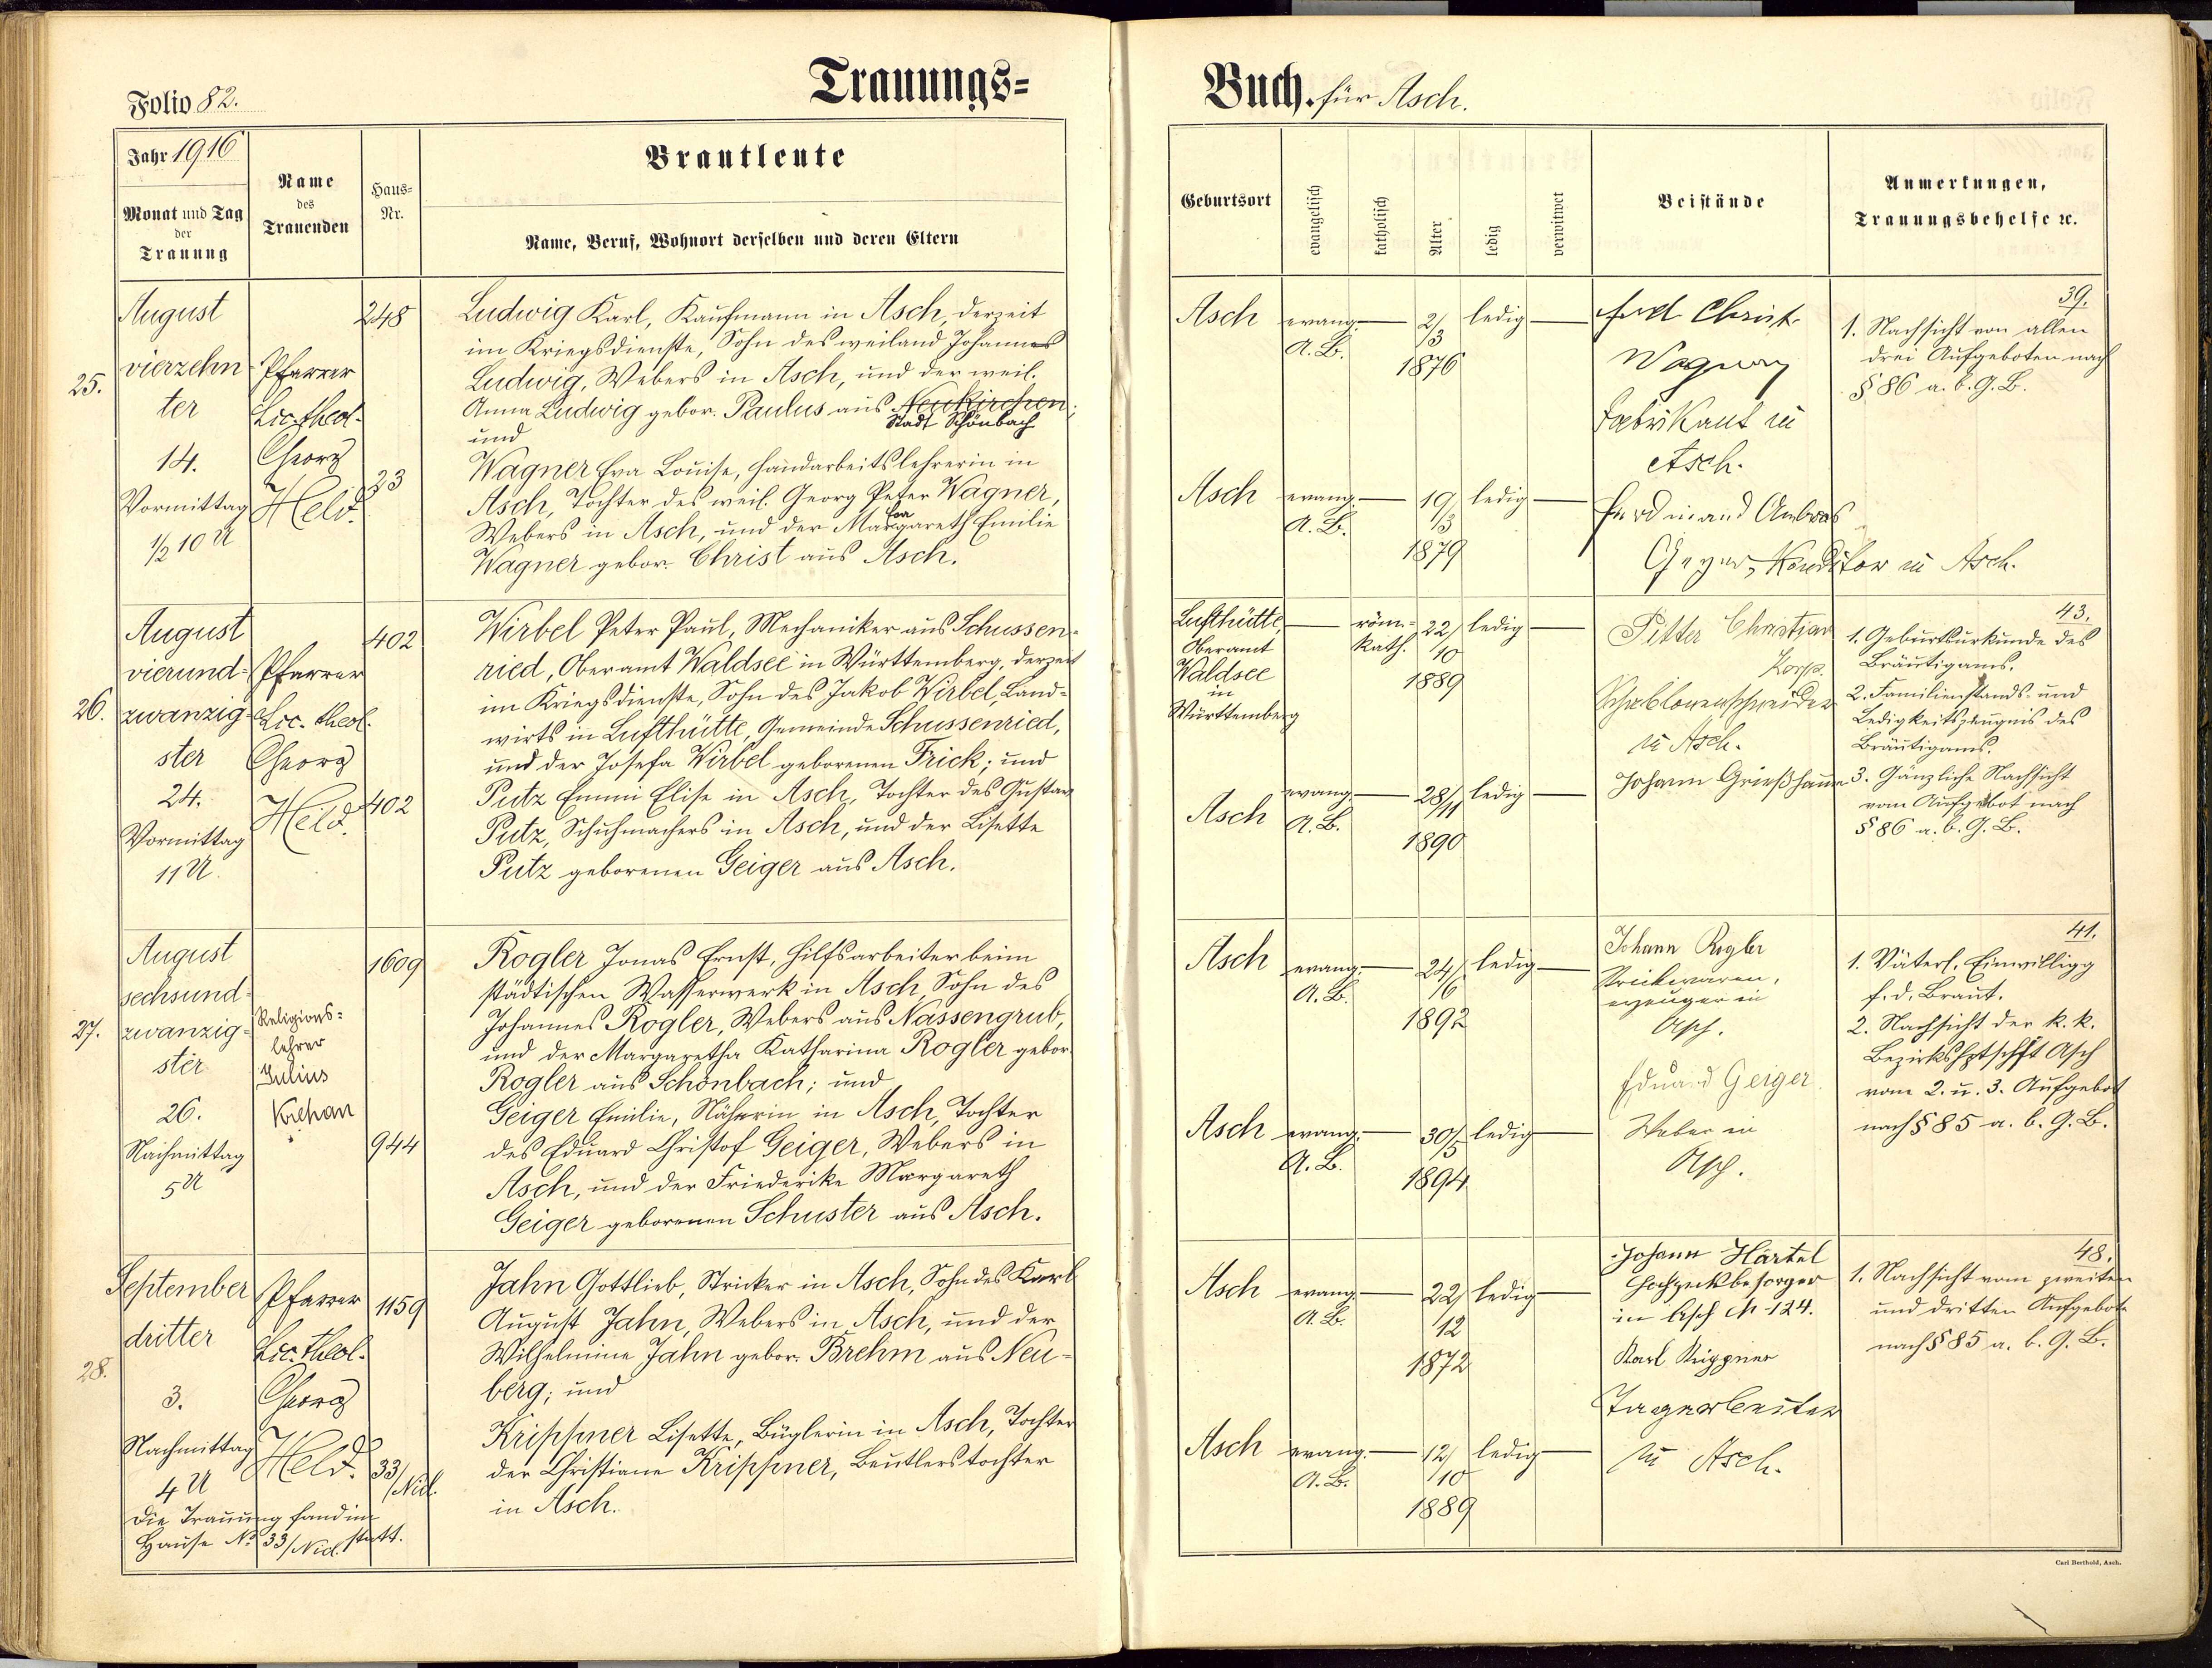 Folio 82.
Trauungs=
Jahr 1916
Monat und Tag
der
Trauung
Name
des
Trauenden
Haus=
Nr.
Brautleute
Name, Beruf, Wohnort derselben und deren Eltern
25.
August
vierzehn
ter
14.
Vormittag
½10 U
Pfarrer
Lic. theol.
Georg
Held.
248
23
Ludwig Karl, Kaufmann in Asch, derzeit
im Kriegsdienste, Sohn des weiland Johannes
Ludwig, Webers in Asch, und der weil.
Anna Ludwig gebor. Paulus aus Neukirchen;
Stadt Schönbach
und
Wagner Eva Louise, Handarbeitslehrerin in
Asch, Tochter des weil. Georg Peter Wagner,
Eva
Webers in Asch, und der Margareth Emilie
Wagner gebor. Christ aus Asch.
26.
August
vierund=
zwanzig=
ster
24.
Vormittag
11 U.
Pfarrer
Lic. theol.
Georg
Held.
402
402
Wirbel Peter Paul, Mechaniker aus Schussen=
ried, Oberamt Waldsee in Württemberg, derzeit
im Kriegsdienste, Sohn des Jakob Wirbel, Land=
wirts in Lufthütte, Gemeinde Schussenried,
und der Josefa Wirbel geborenen Frick; und
Putz Emmi Elise in Asch, Tochter des Gustav
Putz, Schuhmachers in Asch, und der Lisette
Putz geborenen Geiger aus Asch.
27.
August
sechsund=
zwanzig=
ster
26.
Nachmittag
5 U
Religions=
lehrer
Julius
Krehan
1609
944
Rogler Jonas Ernst, Hilfsarbeiter beim
städtischen Wasserwerk in Asch, Sohn des
Johannes Rogler, Webers aus Nassengrub,
und der Margaretha Katharina Rogler gebor.
Rogler aus Schönbach; und
Geiger Emilie, Näherin in Asch, Tochter
des Eduard Christof Geiger, Webers in
Asch, und der Friederike Margareth
Geiger geborenen Schuster aus Asch.
28.
September
dritter
3.
Nachmittag
4 U
Die Trauung fand im
Hause No 33/Nid. statt.
Pfarrer
Lic. theol.
Georg
Held.
1159
33/
Nid.
Jahn Gottlieb, Stricker in Asch, Sohn des Karl
August Jahn, Webers in Asch, und der
Wilhelmine Jahn gebor. Brehm aus Neu=
berg; und
Krippner Lisette, Büglerin in Asch, Tochter
der Christiane Krippner, Beutlerstochter
in Asch.
Buch. für Asch.
Geburtsort
evangelisch
katholisch
Alter
ledig
verwitwet
Beistände
Anmerkungen,
Trauungsbehelfe ec.
Asch
evang.
A. B.
2/
3
1876
ledig
Asch
evang.
A. B.
19/
3
1879
ledig
Christ.
Wagner
Fabrikant in
Asch.
Ferdinand Ambros
Geyer, Konditor in Asch.
39.
1. Nachsicht von allen
drei Aufgeboten nach
§ 86 a. b. G. B.
Lufthütte,
Oberamt
Waldsee
in
Württemberg
röm.=
kath.
22/
10
1889
ledig
Asch
evang.
A. B.
28/
11
1890
ledig
Christian
Korp.
Schablonenschneider
in Asch.
Johann Grießhamm
43.
1. Geburtsurkunde des
Bräutigams.
2. Familienstands- und
Ledigkeitszeugnis des
Bräutigams.
3. Gänzliche Nachsicht
vom Aufgebot nach
§ 86 a. b. G. B.
Asch
evang.
A. B.
24/
6
1892
ledig
Asch
evang.
A. B.
30/
5
1894
ledig
Johann Rogler
Strickwaren,
erzeuger in
Asch.
Eduard Geiger
Weber in
Asch.
41.
1. Väterl. Einwilligg
f. d. Braut.
2. Nachsicht der k. k.
Bezirkshptschft Asch
vom 2. u. 3. Aufgebot
nach § 85 a. b. G. B.
Asch
evang.
A. B.
22/
12
1872
ledig
Asch
evang.
A. B.
12/
10
1889
ledig
Johann Härtel
Hochzeitsbesorger
in Asch N 124.
Karl Krippner
Tagarbeiter
in Asch.
48.
1. Nachsicht vom zweiten
und dritten Aufgebot
nach § 85 a. b. G. B.
Carl Berthold, Asch.